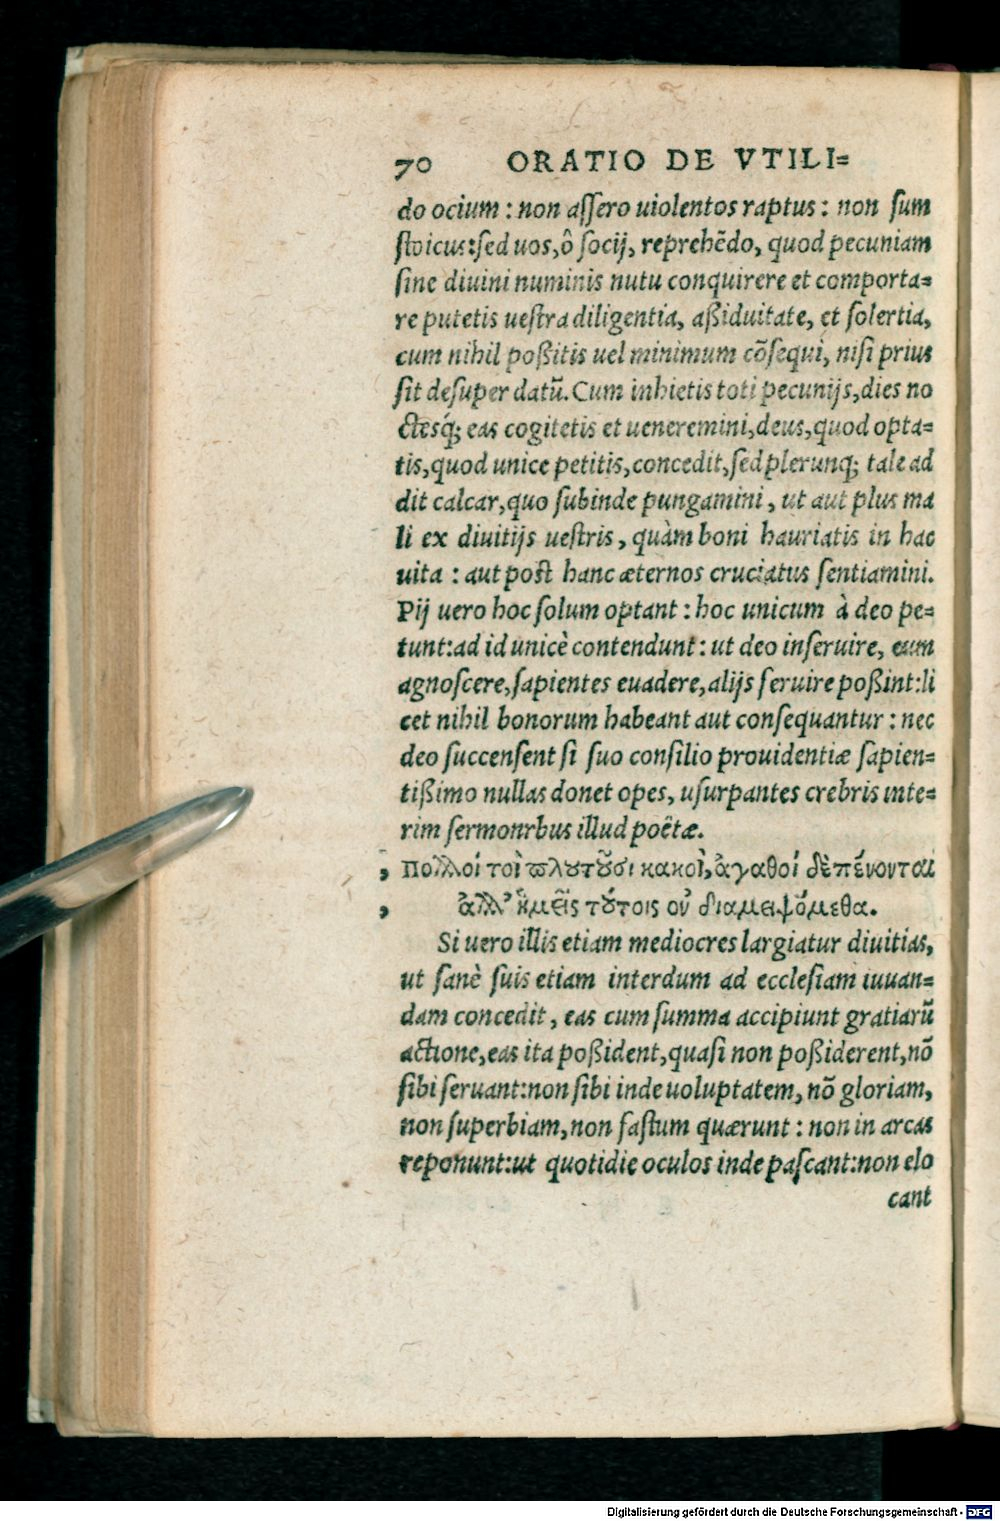 70 ORATIO DE VTILI=
do ocium : non assero uiolentos raptus : non sum
stoicus:sed uos,ô socij, reprehẽdo, quod pecuniam
sine diuini numinis nutu conquirere et comporta=
re putetis uestra diligentia, aßiduitate, et solertia,
cum nihil poßitis uel minimum cõsequi, nisi prius
sit desuper datũ. Cum inhietis toti pecunijs,dies no
ctesq́; eas cogitetis et ueneremini,deus,quod opta=
tis,quod unice petitis,concedit,sed plerunq; tale ad
dit calcar,quo subinde pungamini, ut aut plus ma
li ex diuitijs uestris, quàm boni hauriatis in hac
uita : aut post hanc æternos cruciatus sentiamini.
Pij uero hoc solum optant : hoc unicum à deo pe=
tunt:ad id unicè contendunt : ut deo inseruire, eum
agnoscere,sapientes euadere,alijs seruire poßint:li
cet nihil bonorum habeant aut consequantur : nec
deo succensent si suo consilio prouidentiæ sapien=
tißimo nullas donet opes, usurpantes crebris inte=
rim sermonrbus illud poëtæ.
, Πολλοί τοι πλουτοῦσι κακοὶ, ἀγαθοί δὲ πένονται
, ἀλλ' ἡμεῖς τούτοις οὐ διαμειψόμεθα.
Si uero illis etiam mediocres largiatur diuitias,
ut sanè suis etiam interdum ad ecclesiam iuuan=
dam concedit, eas cum summa accipiunt gratiarũ
actione,eas ita poßident,quasi non poßiderent,nõ
sibi seruant:non sibi inde uoluptatem, nõ gloriam,
non superbiam,non fastum quærunt : non in arcas
reponunt:ut quotidie oculos inde pascant:non elo
cant
Digitalisierung gefördert durch die Deutsche Forschungsgemeinschaft - DFG